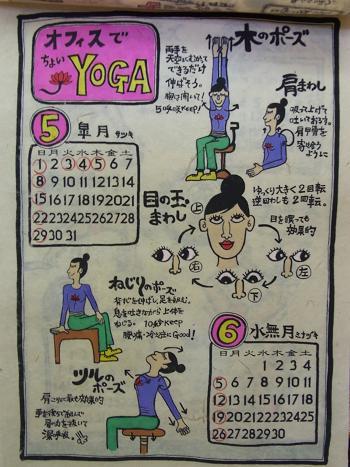 オフィスで
ちょい
YOGA
木のポーズ
両手を
天空にむかって
できるだけ
伸ばそう。
胸は開いて!
5呼吸KEEP!
肩まわし
吸って上げて
吐いておろす。
肩甲骨を
寄せるように
5 皐月 サツキ
日月火水木金土
1 2 3 4 5 6 7
8 9 10 11 12 13 14
15 16 17 18 19 20 21
22 23 24 25 26 27 28
29 30 31
目の玉まわし
ゆっくり大きく2回転
逆回りも2回転。
目を瞑っても
効果的
上
右
左
下
ねじりのポーズ
背すじを伸ばし、足を組む。
息を吐きながら上体を
ねじる。10秒keep
腰痛・冷え症にGood!
ツルの
ポーズ
肩こりに最も効果的
手を後ろで組んで
肩の力を抜いて
深呼吸。
6 水無月 ミナヅキ
日月火水木金土
1 2 3 4
5 6 7 8 9 10 11
12 13 14 15 16 17 18
19 20 21 22 23 24 25
26 27 28 29 30